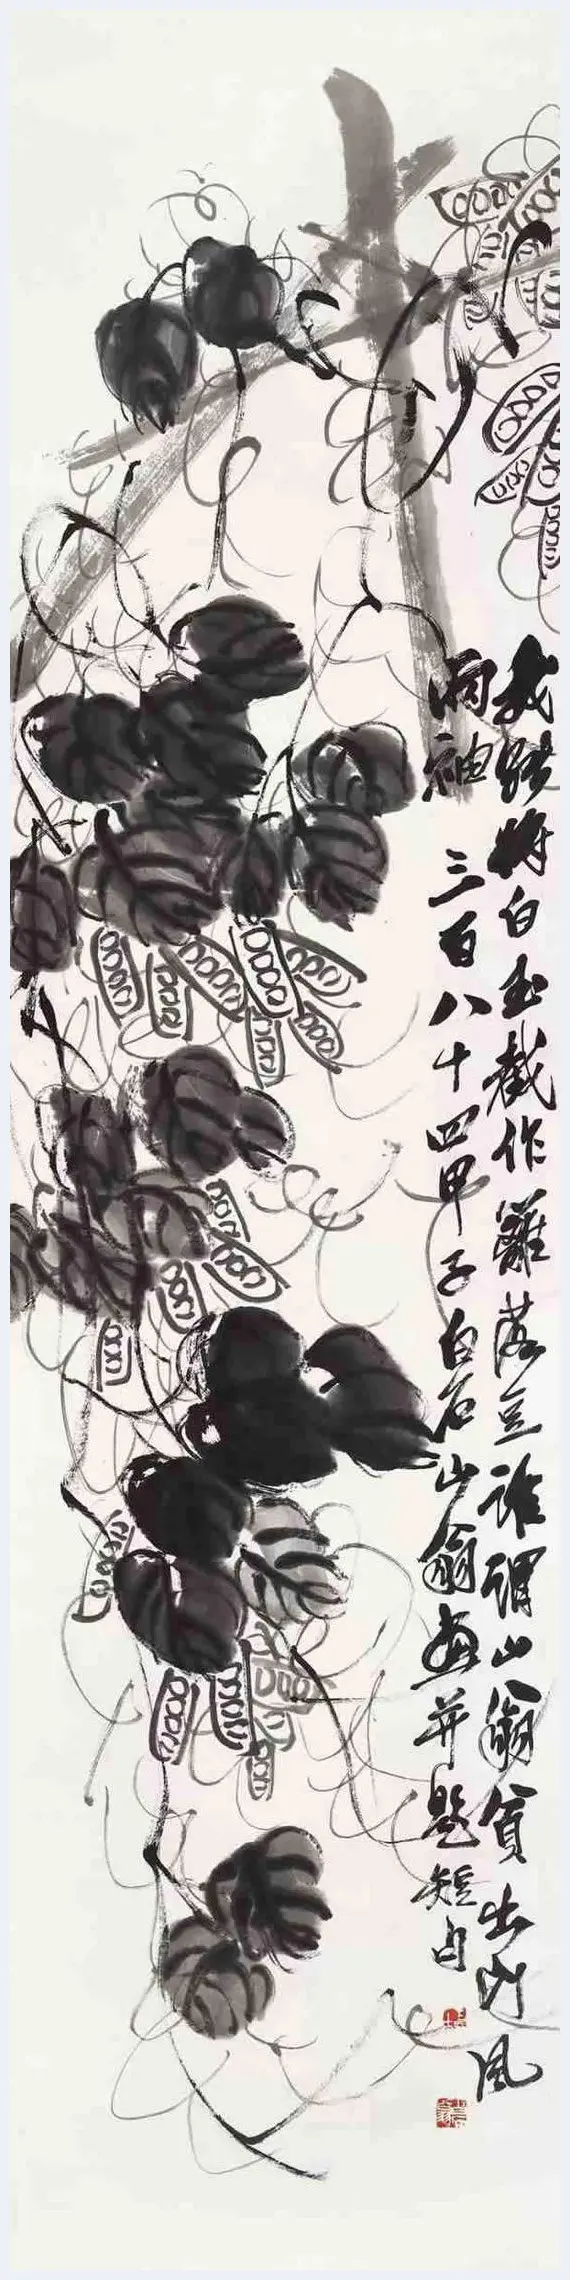 我能將白玉截作籬落豆誰謂山翁貧出門風
兩袖 三百八十四甲子白石山翁畫并題短句